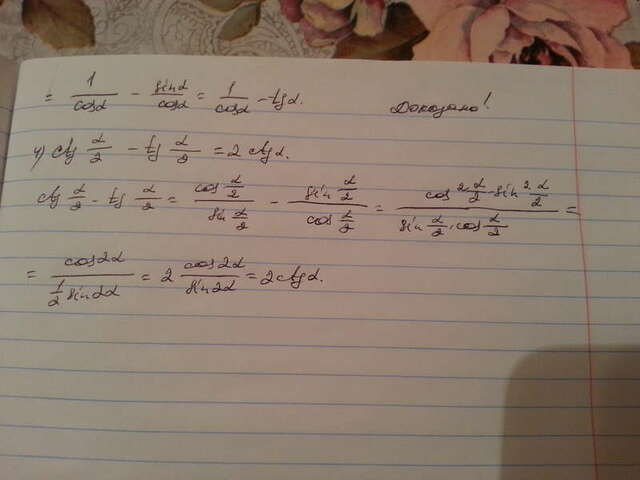 = 1/cosα - sinα/cosα = 1/cosα - tgα. Доказано!
4) ctg α/2 - tg α/2 = 2 ctgα.
ctg α/2 - tg α/2 = cos α/2 / sin α/2 - sin α/2 / cos α/2 = (cos² α/2 - sin² α/2) / (sin α/2 · cos α/2) =
= cos2α / (1/2 sin2α) = 2 cos2α/sin2α = 2ctgα.